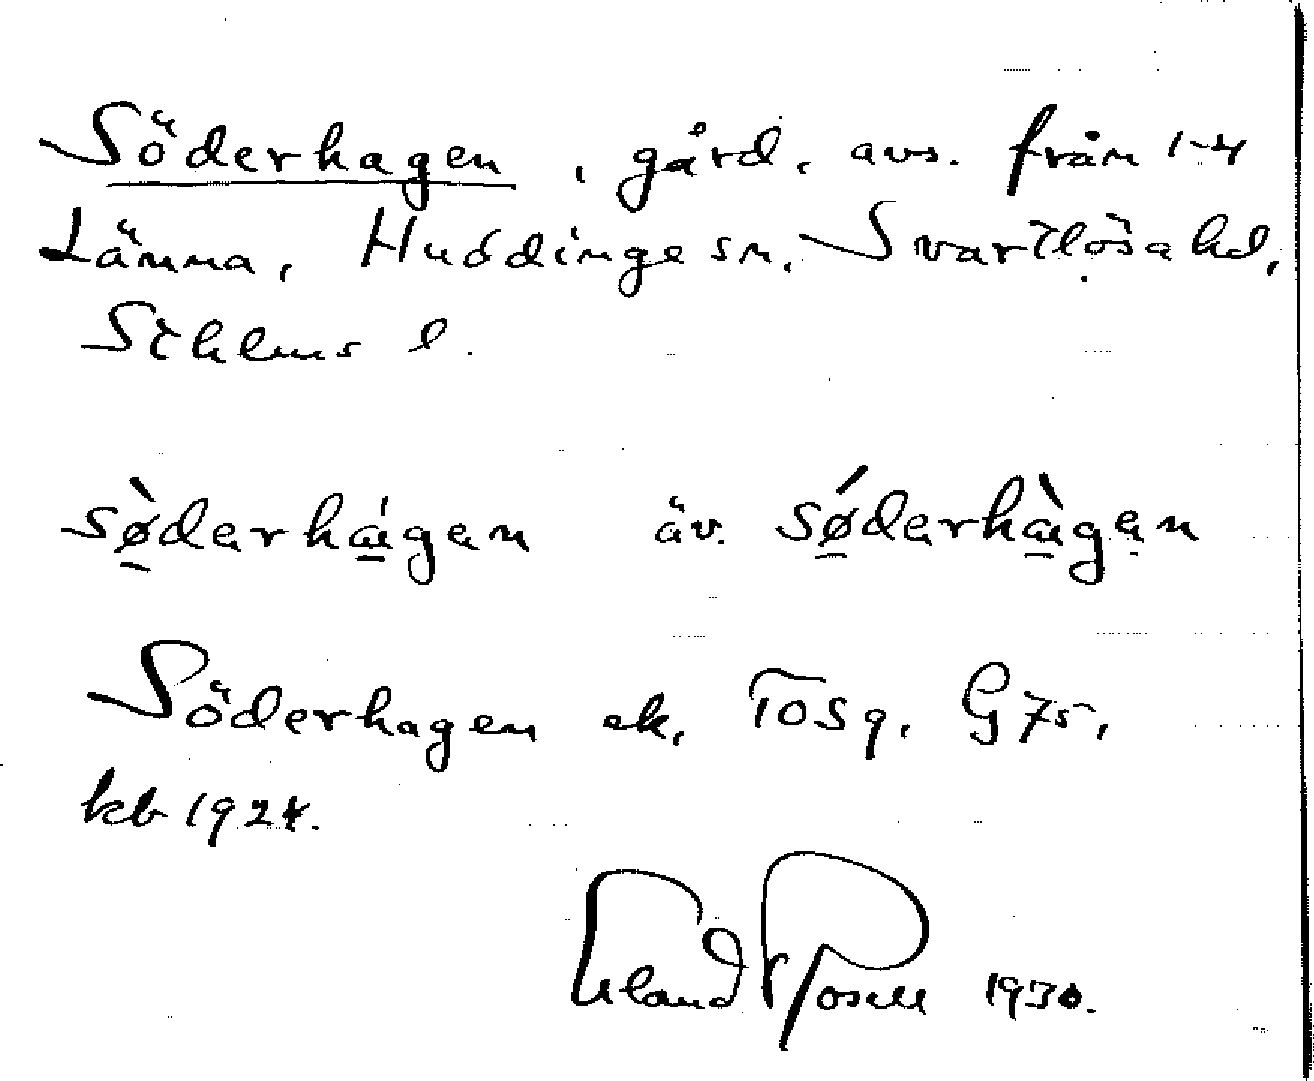 Söderhagen, gård, avs. från 1-4
Länna, Huddinge sn, Svartlösa hd,
Sthlms l.
sø̀derhá̱gen äv. sǿderhà̱gen
Söderhagen ek. Tosq. G75,
kb 1924.
Erland Rosell 1930.